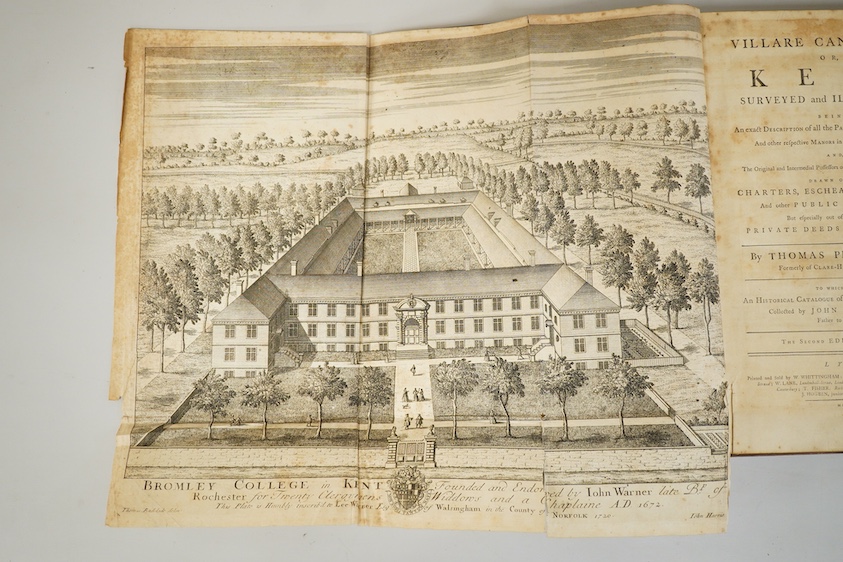 BROMLEY COLLEGE in KENT Founded and Endowed by Iohn Warner late Bp. of
Rochester for Twenty Clergymens Widdows and a Chaplaine A.D 1672.
This Plate is Humbly inscrib'd to Lee Warner Esq of Walsingham in the County of NORFOLK
delin. Iohn Harris
VILLARE CAN
OR,
K E
SURVEYED and
BEIN
An exact DESCRIPTION of all the Pa
And other respective MANORS in
AND
The Original and Intermedial Possessors
DRAWN O
CHARTERS, ESCHEA
And other PUBLIC
But especially out of
PRIVATE DEEDS
By THOMAS P
Formerly of CLARE-H
TO WHICH
An HISTORICAL CATALOGUE of
Collected by JOHN
THE SECOND EDI
L
Printed and sold by W. WHITTINGHAM